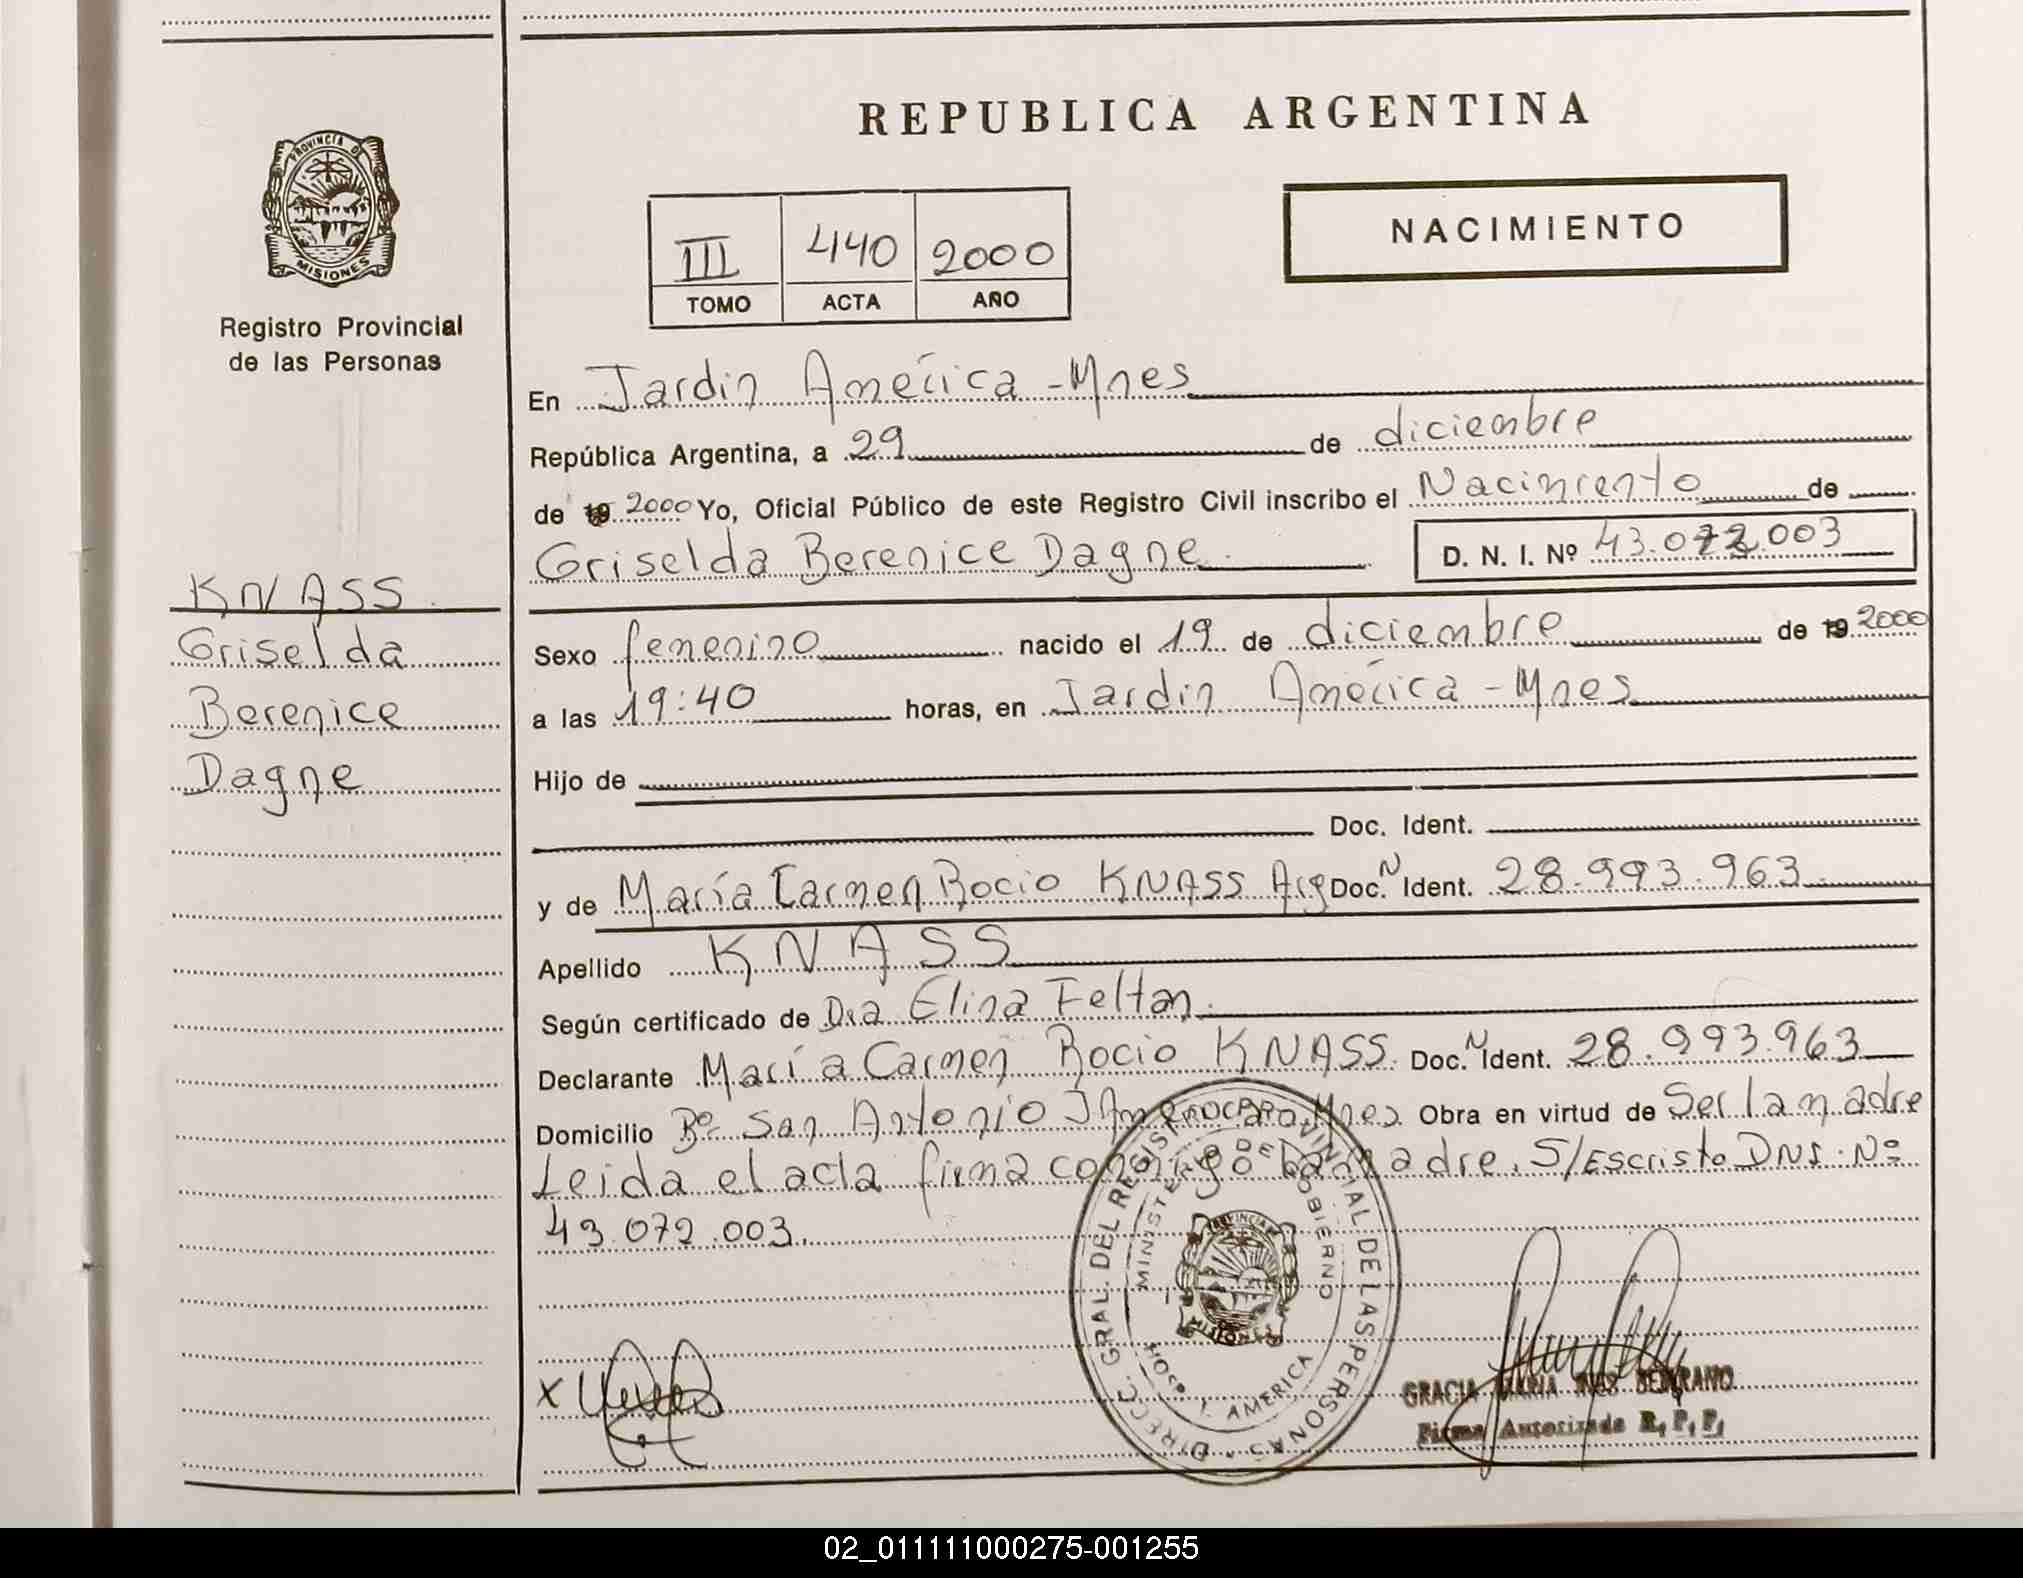 REPUBLICA ARGENTINA
PROVINCIA DE
MISIONES
Registro Provincial
de las Personas
III 440 2000
TOMO ACTA AÑO
NACIMIENTO
En Jardin América - Mnes
República Argentina, a 29 de diciembre
de 19 2000 Yo, Oficial Público de este Registro Civil inscribo el Nacimiento de
Griselda Berenice Dagne D. N. I. Nº 43.072.003
KNASS
Griselda
Berenice
Dagne
Sexo femenino nacido el 19 de diciembre de 19 2000
a las 19:40 horas, en Jardin América - Mnes
Hijo de
Doc. Ident.
y de María Carmen Rocio KNASS Arg Doc. N Ident. 28.993.963
Apellido KNASS
Según certificado de Dra Elina Feltan
Declarante María Carmen Rocio KNASS Doc. N Ident. 28.993.963
Domicilio Bº San Antonio J. América, Mnes Obra en virtud de Ser la madre
Leida el acta firma conmigo la madre. S/Escristo DNI. Nº
43.072.003.
DIRECC. GRAL. DEL REGISTRO PROVINCIAL DE LAS PERSONAS
MINISTERIO DE GOBIERNO
PROVINCIA DE
MISIONES
HOSP. J. AMERICA
X
GRACIA MARIA INES BEJARANO
Firma Autorizada R.P.P.
02_011111000275-001255